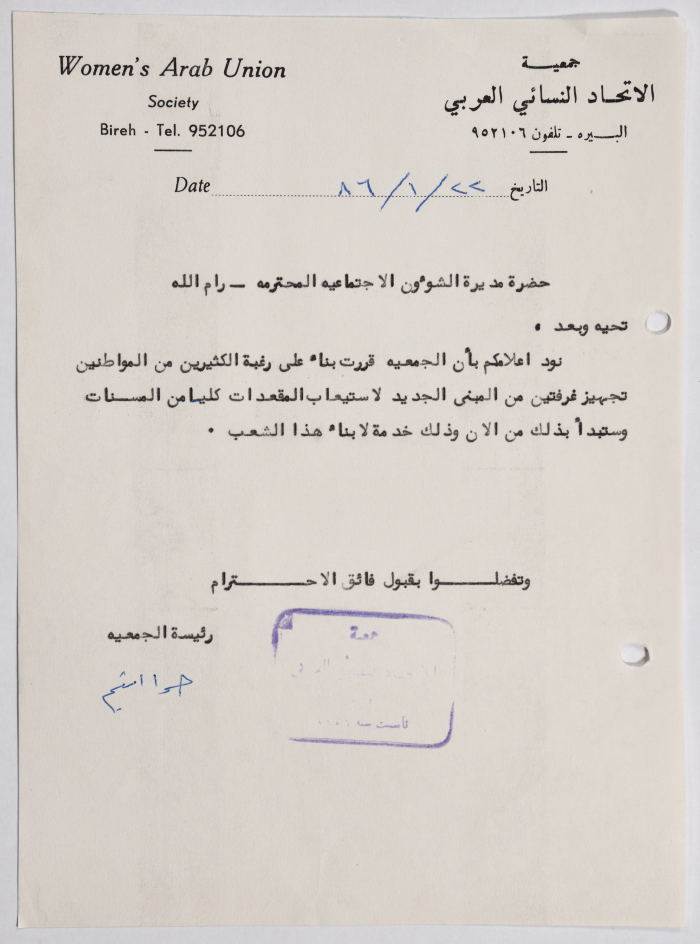 Women's Arab Union
Society
Bireh - Tel. 952106
جمعيــة
الاتحــاد النسائي العربي
البـــيره ــ تلفون ٩٥٢١٠٦
Date ٨٦/١/٢٢ التاريخ
حضرة مديرة الشوءون الاجتماعيه المحترمه ــ رام الله
تحيه وبعد .
نود اعلامكم بأن الجمعيه قررت بناء على رغبة الكثيرين من المواطنين
تجهيز غرفتين من المبنى الجديد لاستيعاب المقعدات كليا من المســنات
وستبدأ بذلك من الان وذلك خدمة لابناء هذا الشعب .
وتفضلـــــــوا بقبول فائق الاحـــــــترام
رئيسة الجمعيه
تأسست سنة